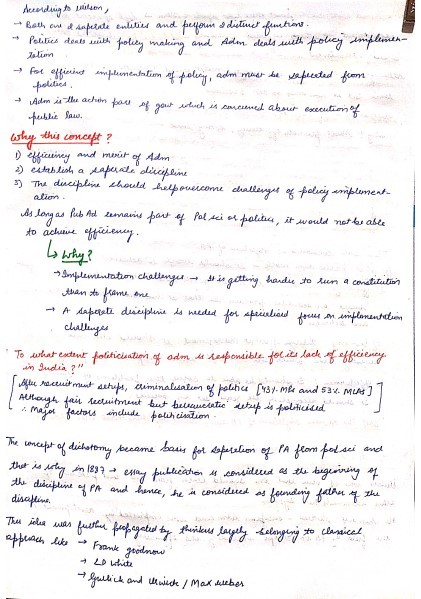 According to Wilson,
→ Both are 2 saperate entities and perform 2 distinct functions.
→ Politics deals with policy making and Adm deals with policy implemen-
tation
→ For efficient implementation of policy, adm must be saperated from
politics.
→ Adm is the action part of govt which is concerned about execution of
public law.
Why this concept?
1) efficiency and merit of Adm
2) establish a saperate discipline
3) The discipline should help overcome challenges of policy implement-
ation.
As long as Pub Ad remains part of Pol sci or politics, it would not be able
to achieve efficiency.
↳ Why?
→ Implementation challenges → It is getting harder to run a constitution
than to frame one
→ A saperate discipline is needed for specialised focus on implementation
challenges
"To what extent politicisation of adm is responsible for its lack of efficiency
in India?"
[After recruitment setups, criminalisation of politics [43% MPs and 53% MLAs]
Although fair recruitment but bureaucratic setup is politicised
∴ Major factors include politicisation.]
The concept of dichotomy became basis for saperation of PA from pol sci and
that is why in 1887 → essay publication is considered as the beginning of
the discipline of PA and hence, he is considered as founding father of the
discipline.
This idea was further propagated by thinkers largely belonging to classical
approach like → Frank goodnow
→ LD White
→ Gullick and Urwick / Max weber